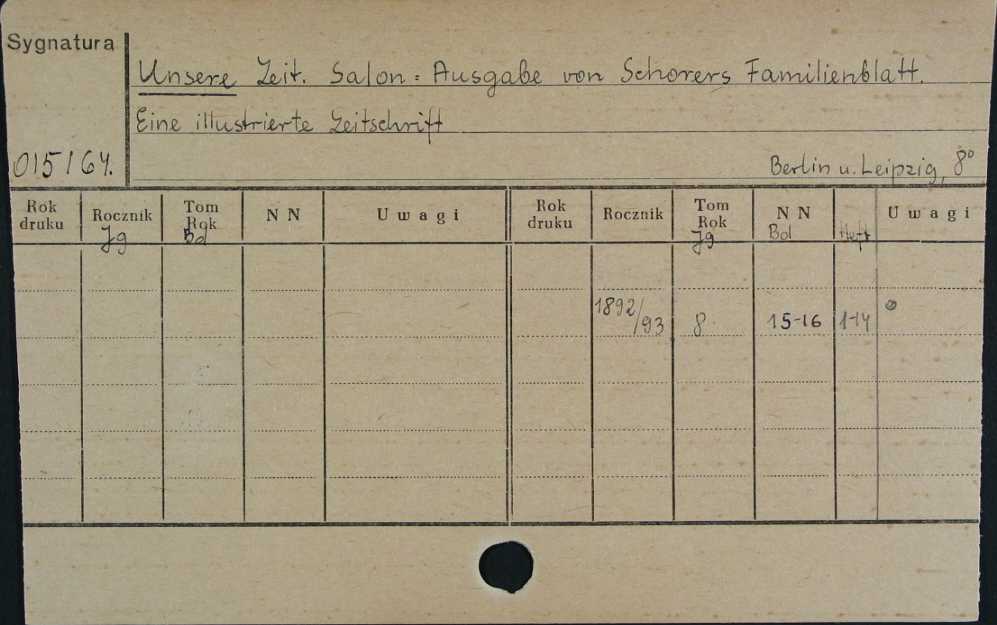 Sygnatura
Unsere Zeit. Salon=Ausgabe von Schorers Familienblatt.
Eine illustrierte Zeitschrift
015164. Berlin u. Leipzig, 8°
Rok druku Rocznik Tom Rok N N Uwagi Rok druku Rocznik Tom Rok N N Uwagi
Jg Bd Jg Bd Heft
1892/93 8 15-16 1-14